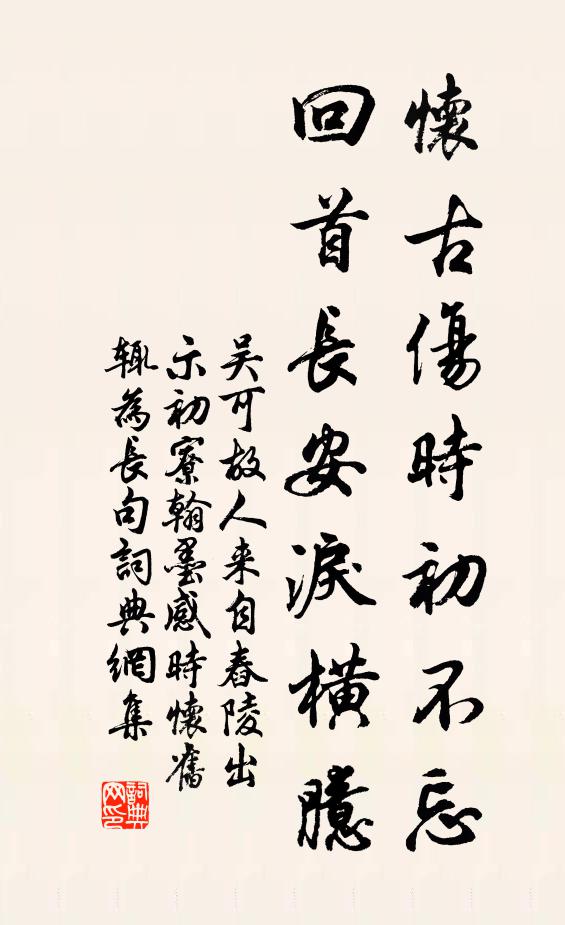 懷古傷時初不忘
回首長安淚橫臆
吴可故人来自舂陵出
示初寮翰墨感時懷舊
輒為長句詞典網集
詞典网印